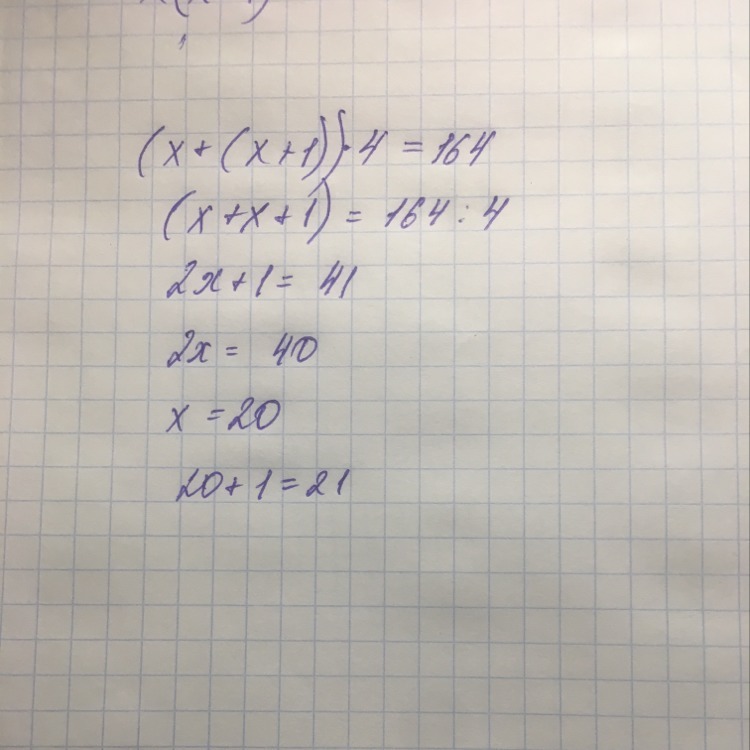 (x + (x + 1)) · 4 = 164
(x + x + 1) = 164 : 4
2x + 1 = 41
2x = 40
x = 20
20 + 1 = 21